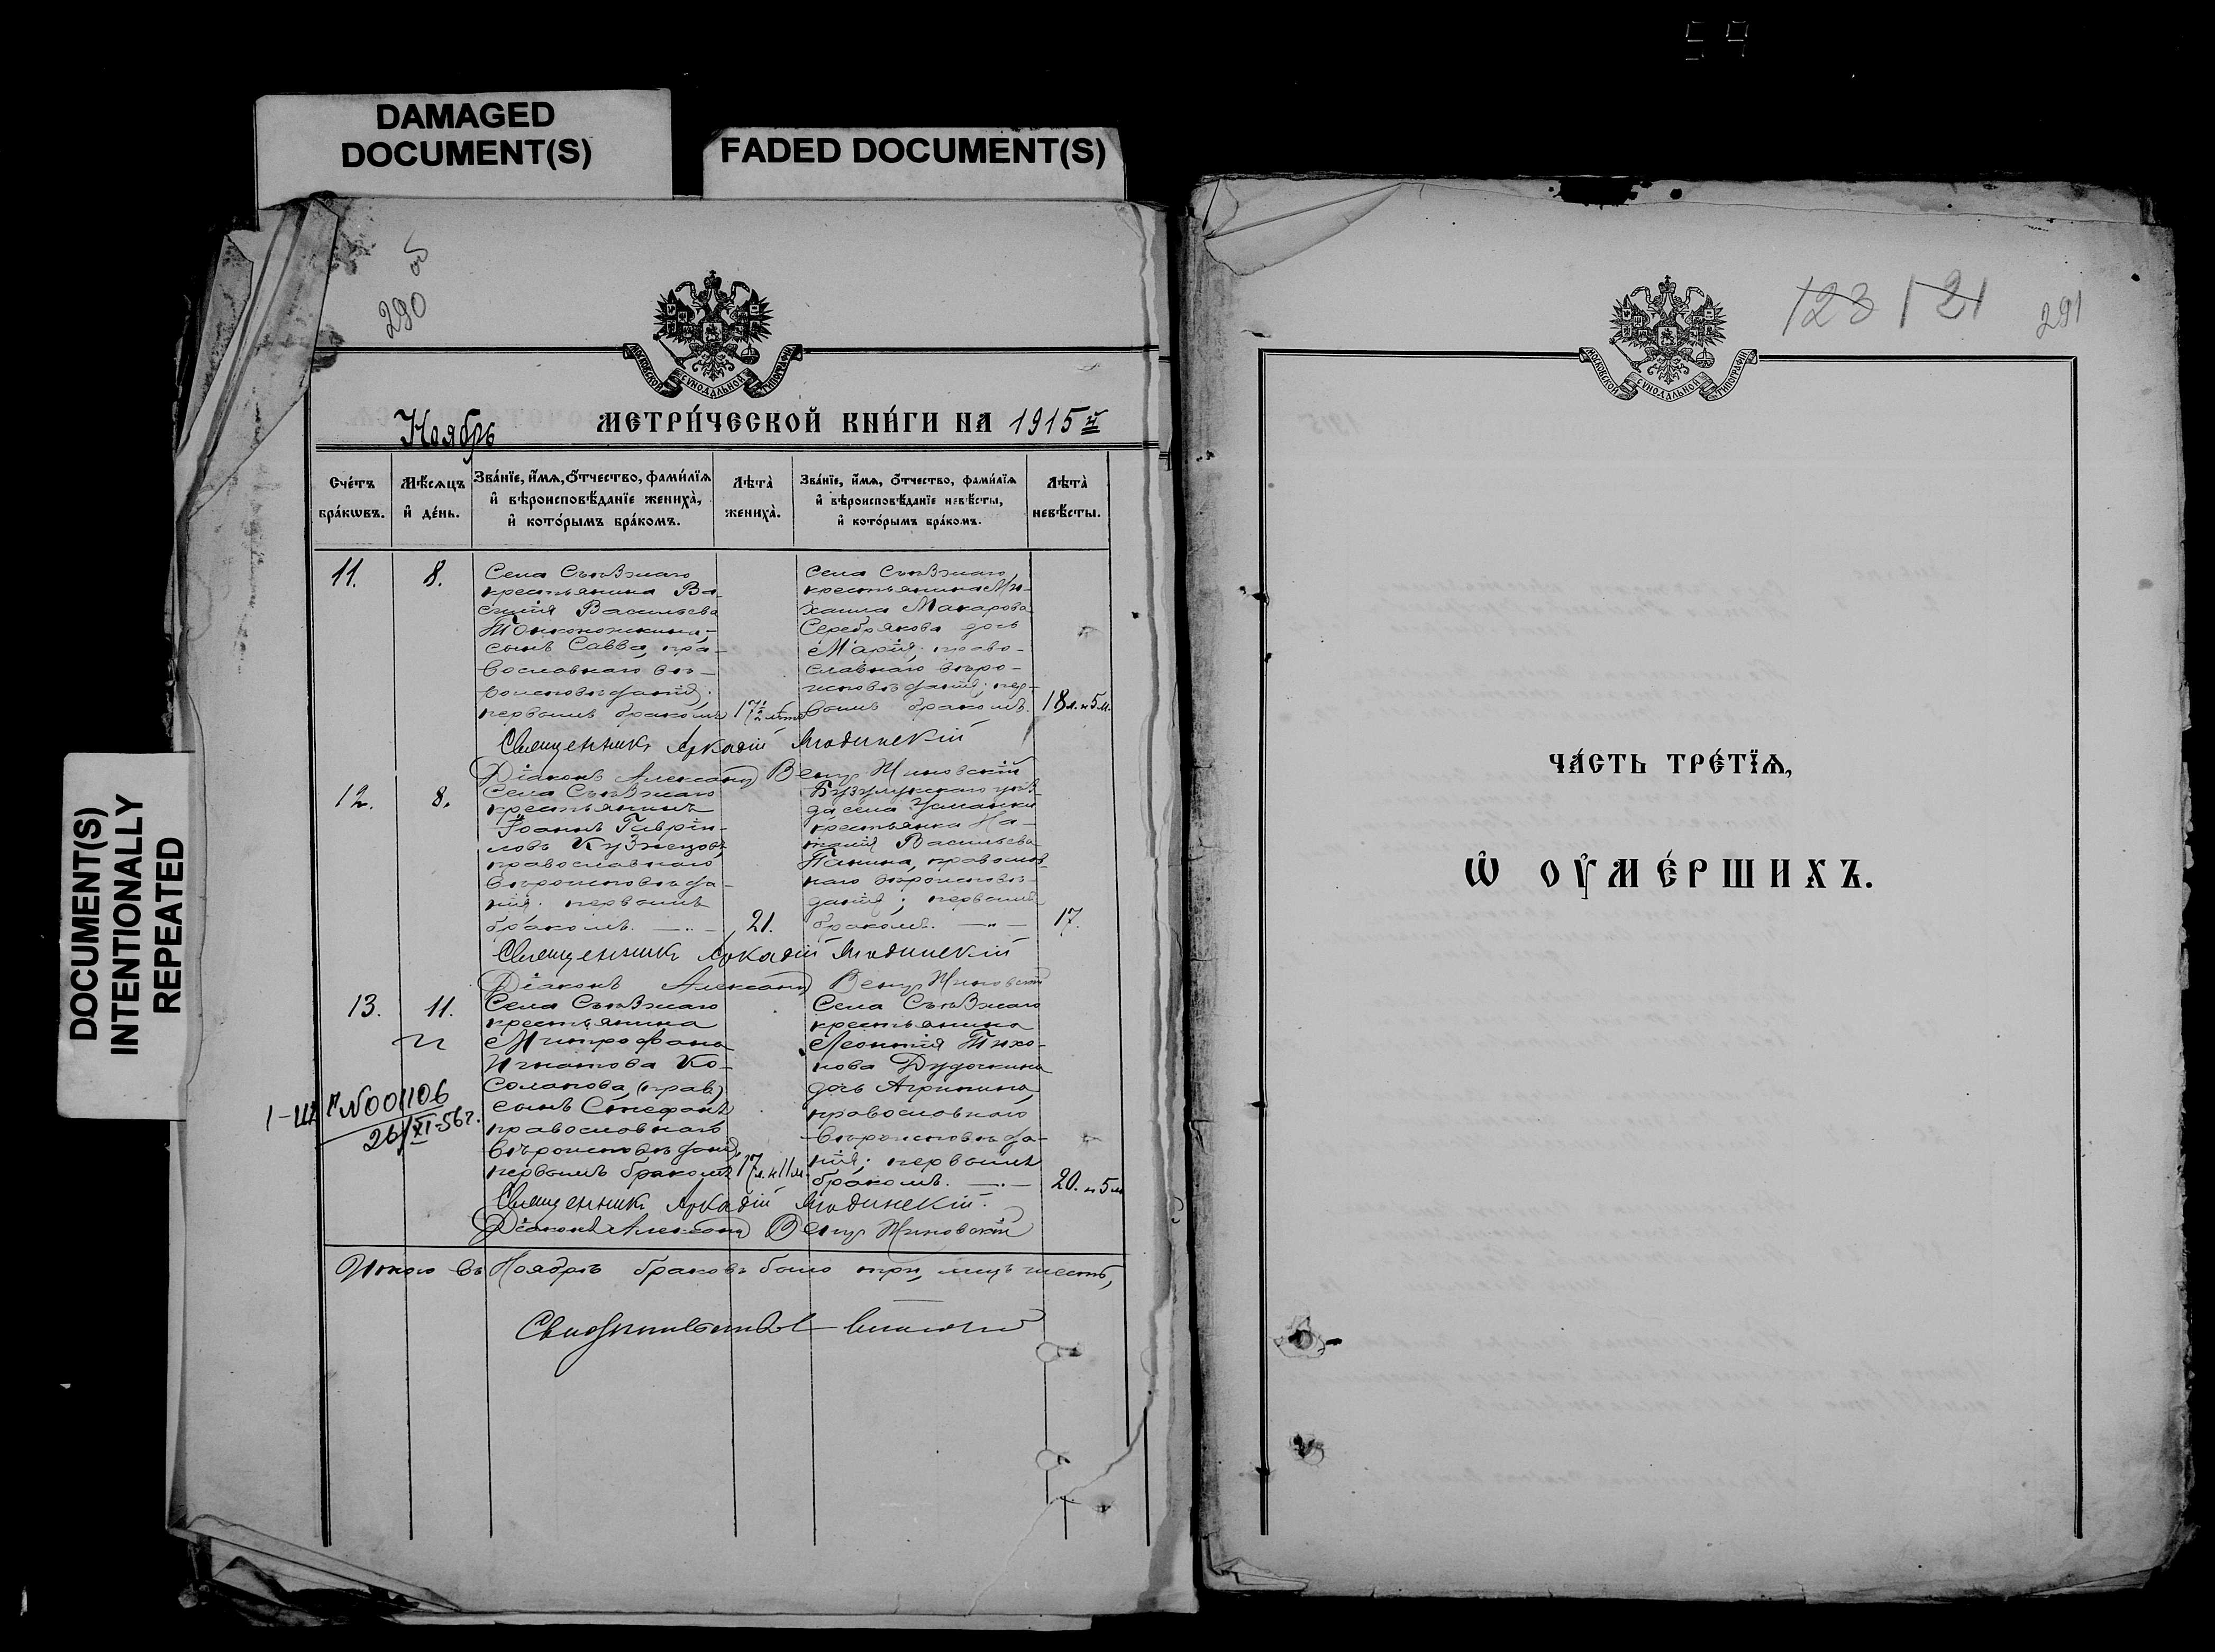 59
DAMAGED
DOCUMENT(S)
FADED DOCUMENT(S)
DOCUMENT(S)
INTENTIONALLY
REPEATED
290
МОСКОВСКОЙ СУНОДАЛЬНОЙ ТИПОГРАФІИ
Ноябрь МЕТРИ́ЧЕСКОЙ КНИ́ГИ НА 1915 й
Сче́тъ бра́кѡвъ.
Мѣ́сѧцъ и҆ де́нь.
Зва́нїе, и҆́мѧ, ѻ҆́тчество, фами́лїѧ и҆ вѣроисповѣ́данїе жениха̀, и҆ кото́рымъ бра́комъ.
Лѣта̀ жениха̀.
Зва́нїе, и҆́мѧ, ѻ҆́тчество, фами́лїѧ и҆ вѣроисповѣ́данїе невѣ́сты, и҆ кото́рымъ бра́комъ.
Лѣта̀ невѣ́сты.
11.
8.
Села Съѣзжаго
крестьянина Ва-
силія Васильева
Тонконожкина-
сынъ Савва, пра-
вославнаго вѣ-
роисповѣданія;
первымъ бракомъ
17½ лѣтъ
Села Съѣзжаго,
крестьянина Ми-
хаила Макарова
Серебрякова дочь
Марія, право-
славнаго вѣро-
исповѣданія; пер-
вымъ бракомъ.
18 л. и 5 м.
Священникъ Аркадій
Діаконъ Александр
12.
8.
Села Съѣзжаго
крестьянинъ
Іоаннъ Гаврiи-
ловъ Кузнецовъ
православнаго
вѣроисповѣда-
нія; первымъ
бракомъ.
21.
Бузулукскаго уѣз-
да села Утевки
крестьянка На-
талія Васильева
Панина, православ-
наго вѣроисповѣ-
данія; первымъ
бракомъ.
17.
Священникъ Аркадій
Діаконъ Александр
13.
11.
Села Съѣзжаго
крестьянина
Митрофана
Игнатова Ко-
солапова, (прав)
сынъ Стефанъ
православнаго
вѣроисповѣданія,
первымъ бракомъ
17 л. и 11 м.
Села Съѣзжаго
крестьянина
Леонтія Тихо-
нова Дудочкина
дочь Агрипина,
православнаго
вѣроисповѣда-
нія; первымъ
бракомъ.
20. и 5 м
№001106
26/XI-56г.
Священникъ Аркадій
Діаконъ Александр
Итого въ Ноябрѣ браковъ было три, лицъ шесть,
123 121 291
МОСКОВСКОЙ СУНОДАЛЬНОЙ ТИПОГРАФІИ
ЧА́СТЬ ТРЕ́ТЇѦ,
Ѡ҆ ОУ҆МЕ́РШИХЪ.